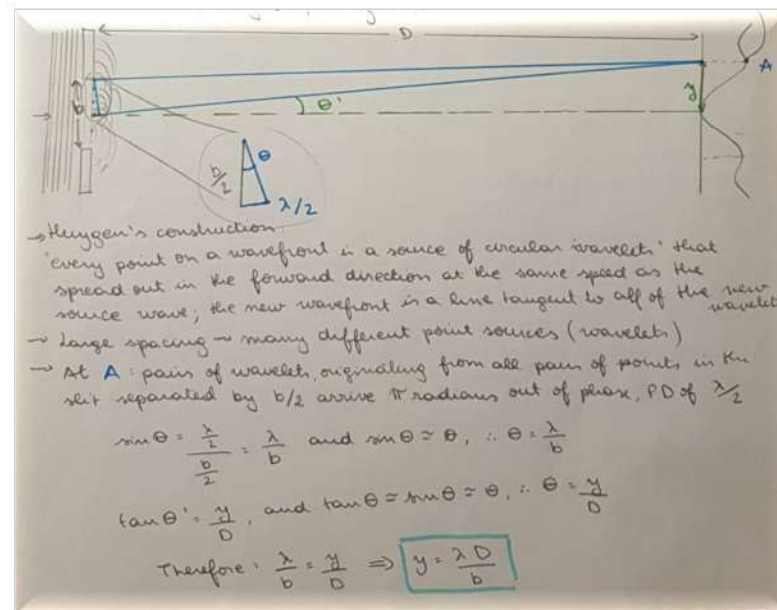 D
A
b
θ'
y
b/2
θ
λ/2
→ Huygen's construction:
'every point on a wavefront is a source of circular 'wavelets' that
spread out in the forward direction at the same speed as the
source wave; the new wavefront is a line tangent to all of the new
wavelet
→ Large spacing → many different point sources (wavelets)
→ At A: pairs of wavelets, originating from all pairs of points in the
slit separated by b/2 arrive π radians out of phase, PD of λ/2
sin θ = (λ/2)/(b/2) = λ/b and sin θ ≃ θ, ∴ θ = λ/b
tan θ' = y/D, and tan θ ≃ sin θ ≃ θ, ∴ θ = y/D
Therefore: λ/b = y/D ⇒ y = λD/b